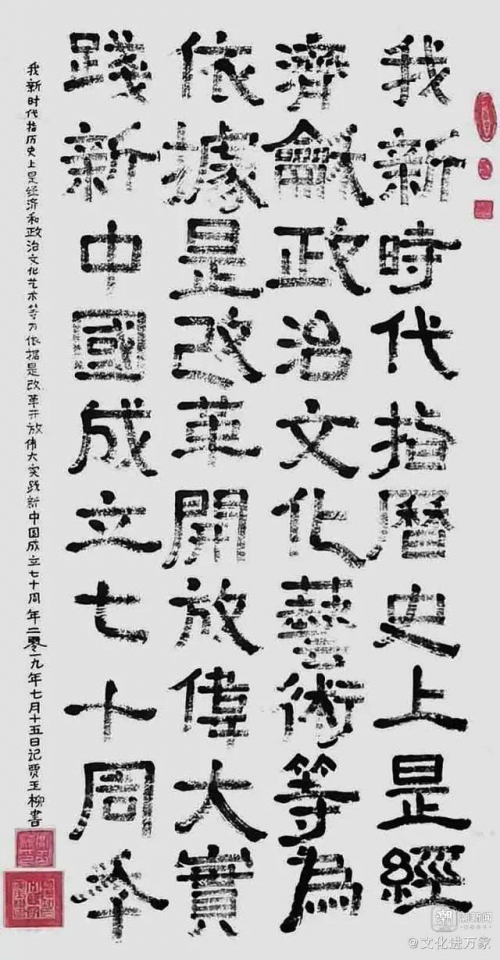 我新時代指曆史上是經
濟龢政治文化藝術等為
依據是改革開放偉大實
踐新中國成立七十周年
我新时代指历史上是经济和政治文化艺术等为依据是改革开放伟大实践新中国成立七十周年二零一九年七月十五日记贾王柳書
@文化进万家